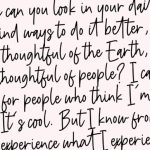 can you look in your dai
ind ways to do it better,
thoughtful of the Earth,
thoughtful of people? I ca
for people who think I'm
It's cool. But I know from
experience what I experie